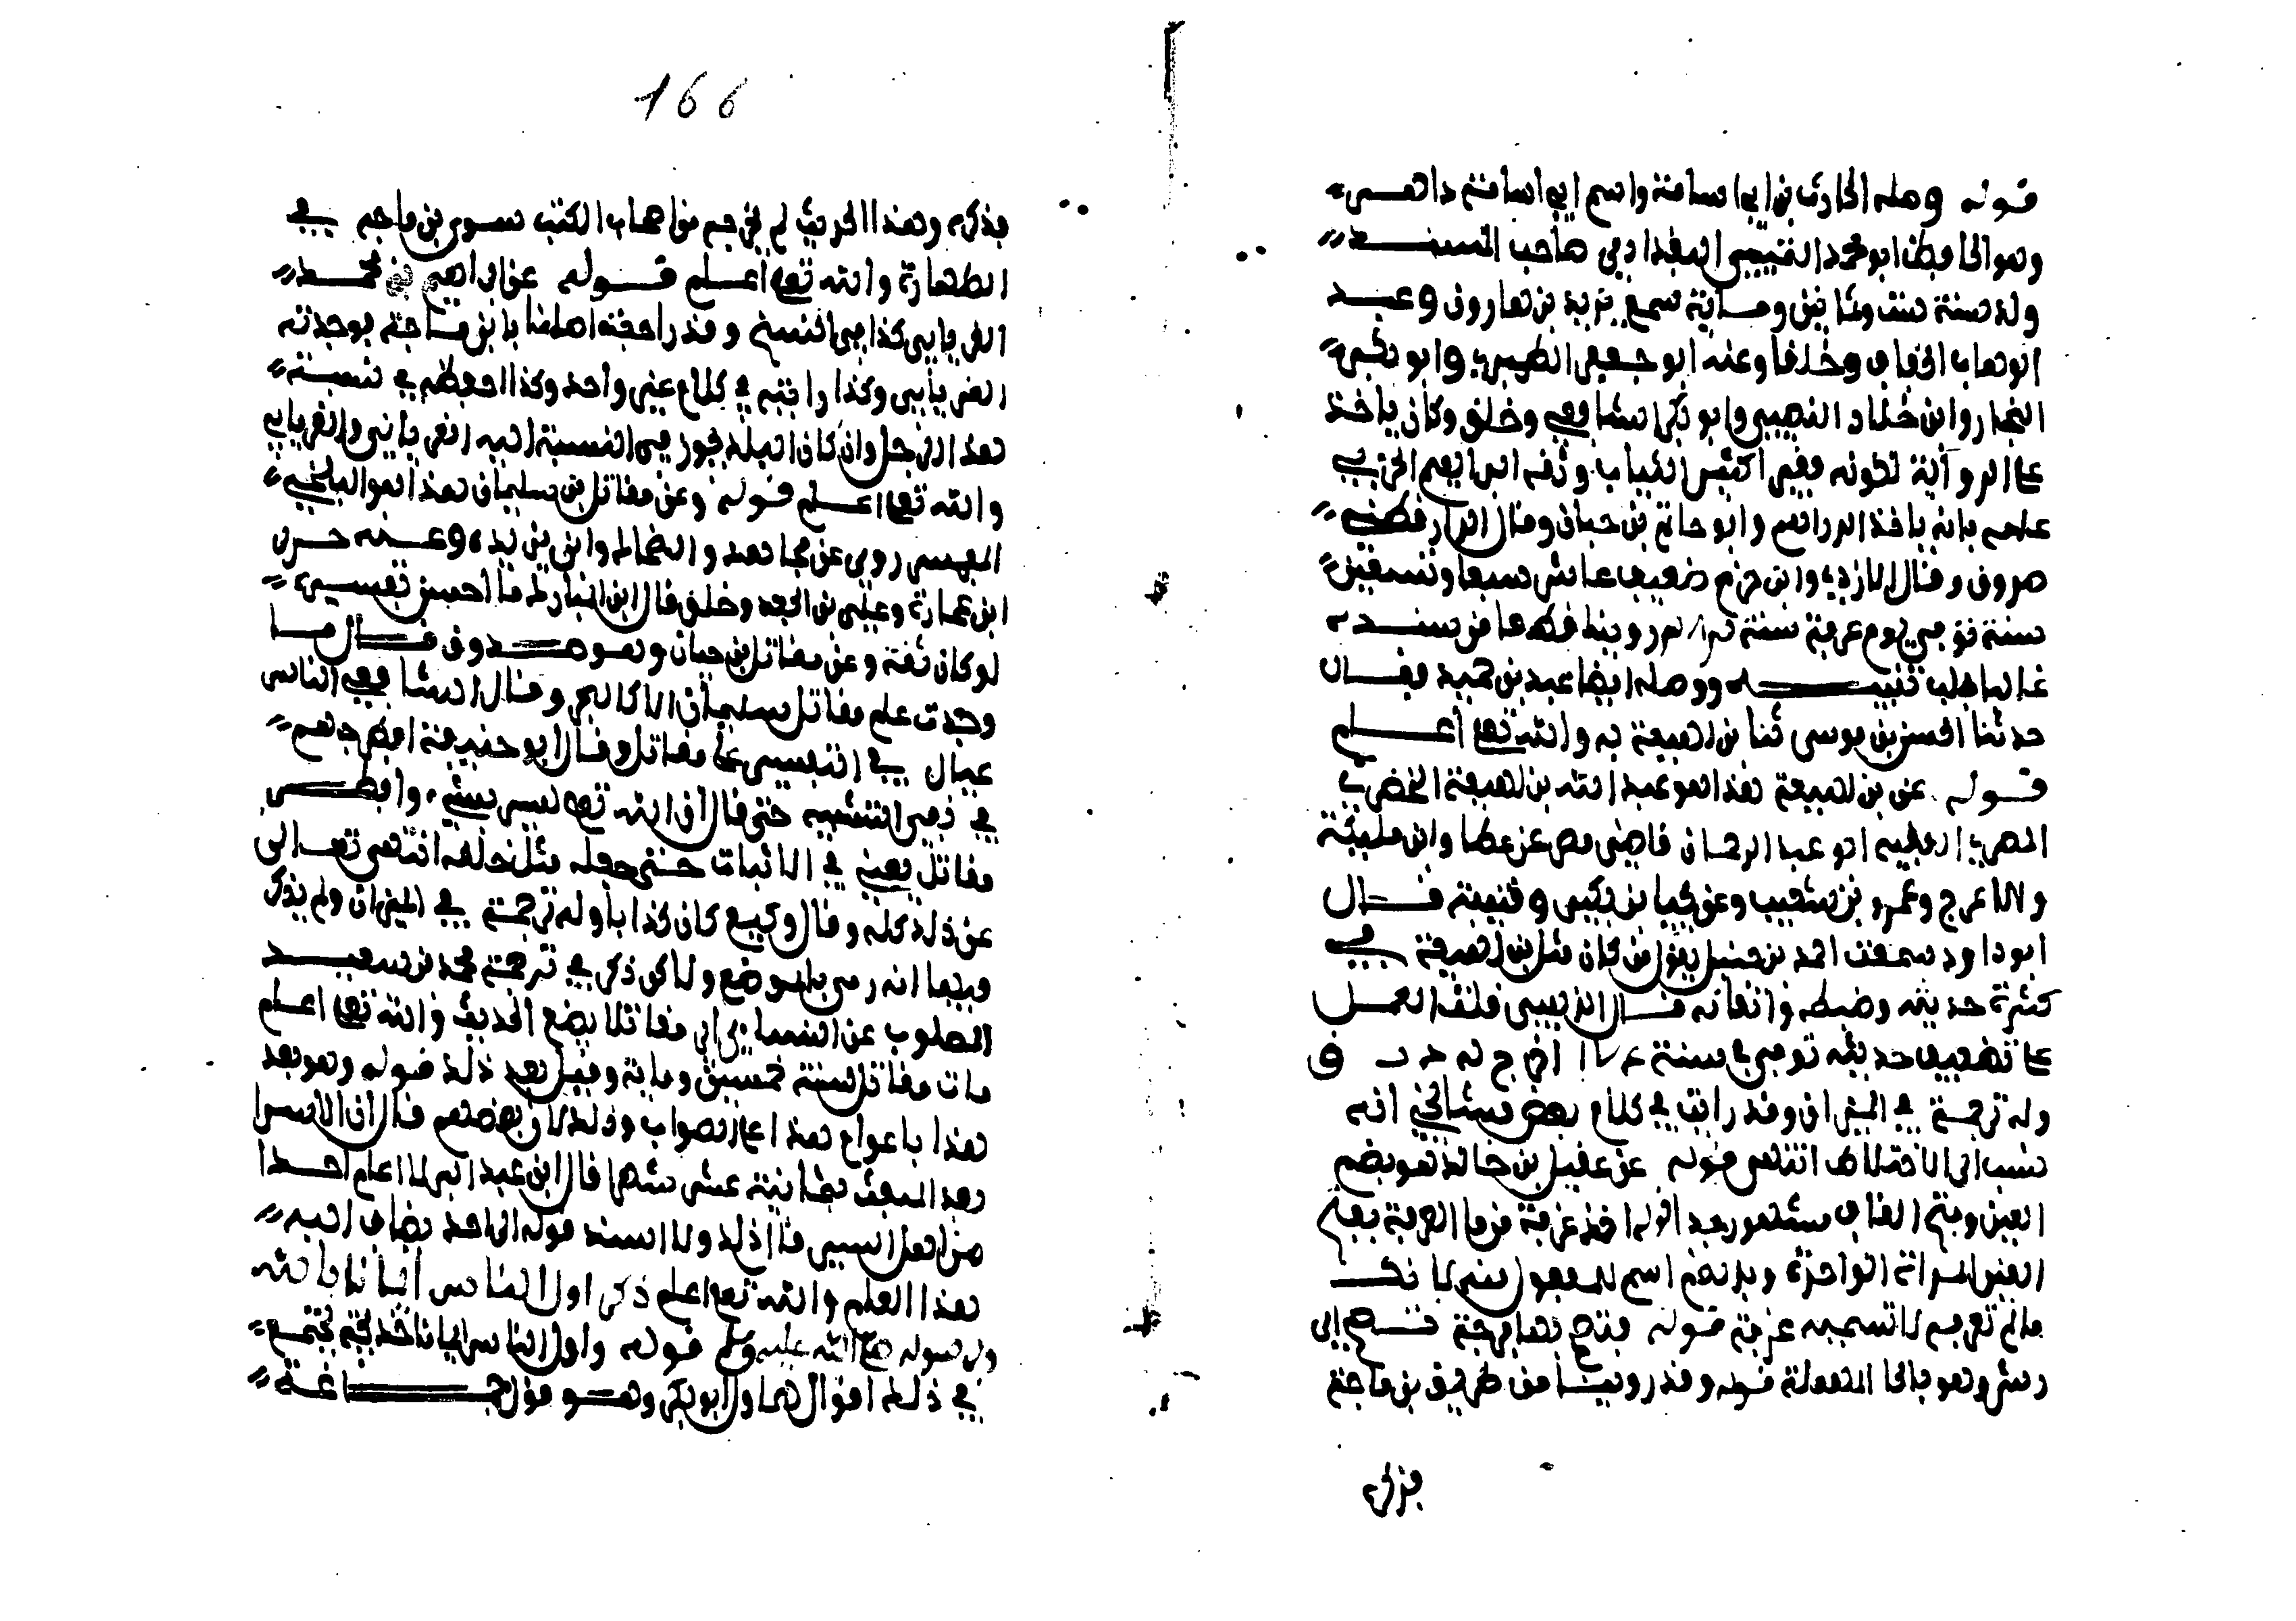 قوله وصله الحارث بن ابي اسامة واسم ابي اسامة داهر
وهو الحافظ ابو محمد التميمي البغدادي صاحب المسند
ولد سنة ست وثمانين ومائة سمع يزيد بن هارون وعبد
الوهاب الخفاف وخلقا وعنه ابو جعفر الطبري وابو بكر
النجار وابن خلاد النصيبي وابو بكر الشافعي وخلق وكان ياخذ
على الرواية لكونه فقير اكثير البنات وثقه ابراهيم الحربي
علمه بانه ياخذ الدراهم وابو حاتم بن حبان وقال الدارقطني
صدوق وقال الازدي وابن حزم ضعيف عاش سبعا وتسعين
سنة توفي يوم عرفة سنة روينا من مسنده
غالبا ووصله ايضا عبد بن حميد فقال
حدثنا الحسن بن موسى ثنا بن لهيعة به والله تعلى اعلم
قوله عن بن لهيعة هذا هو عبد الله بن لهيعة الحضرمي
المصري الفقيه ابو عبد الرحمان قاضي مصر عن عطا وابن مليكة
والاعرج وعمرو بن شعيب وعن يحيا بن بكير وقتيبة قال
ابو داود سمعت احمد بن حنبل يقول من كان مثل بن لهيعة في
كثرة حديثه وضبطه واتقانه قال الذهبي قلت العمل
على تضعيف حديثه توفي سنة ١٧٤ اخرج له د ت ق
وله ترجمة في الميزان وقد رايت في كلام بعض مشائخي انه
نسب الى الاختلاط انتهى قوله عن عقيل بن خالد هو بضم
العين وفتح القاف مشهور بعد قوله اخذ غرفة من ما الغرفة بفتح
الغين المراة الواحدة وبالضم اسم للمفعول منه لا نك
مالم تغرفه لا تسميه غرفة قوله فنضح بها فرجه نضح اي
رش وهو بالحا المهملة قوله وقد روينا من طريق بن ماجة
فذكره
166
فذكره وهذا الحديث لم يخرجه من اصحاب الكتب سوى بن ماجه في
الطهارة والله تعلى اعلم قوله عن ابراهيم بن محمد
الفريابي كذا في النسخ وقد راجعت اصلنا بابن ماجة فوجدته
الفريابي وكذا رايته في كلام غير واحد وكذا احفظه في نسبة
هذا الرجل وان كان البلد يجوز في النسبة اليه الفريابي والفريابي
والله تعلى اعلم قوله وعن مقاتل بن سليمان هذا هو البلخي
المفسر روى عن مجاهد والضحاك وابن بريدة وعنه حرمي
ابن عمارة وعلي بن الجعد وخلق قال ابن المبارك ما احسن تفسيره
لو كان ثقة وعن مقاتل بن حيان وهو صدوق قال ما
وجدت علم مقاتل سليمان الا كالبحر وقال الشافعي الناس
عيال في التفسير على مقاتل وقال ابو حنيفة افرط جهم
في نفي التشبيه حتى قال ان الله تعلى ليس بشيء وافرط
مقاتل يعني في الاثبات حتى جعله مثل خلقه انتهى تعالى
عن ذلك كله وقال وكيع كان كذابا وله ترجمة في الميزان ولم يذكر
فيها انه رمي بالوضع ولاكن ذكر في ترجمة محمد بن سعيد
المصلوب عن النسايي ان مقاتلا يضع الحديث والله تعلى اعلم
مات مقاتل سنة خمسين ومائة وقيل بعد ذلك قوله وهو بعد
هذا باعوام هذا على الصواب وذلك لان بعضهم قال ان الاسرا
بعد المبعث بثمانية عشر شهرا قال ابن عبد البر لا اعلم احدا
من اهل السير قال ذلك ولا اسند قوله الى احد يضاف اليه
هذا العلم والله تعلى اعلم ذكر اول الناس ايمانا بالله
ورسوله صلى الله عليه وسلم قوله واول الناس ايمانا خديجة يجتمع
في ذلك اقوال هما اول ابو بكر وهو قول جماعة